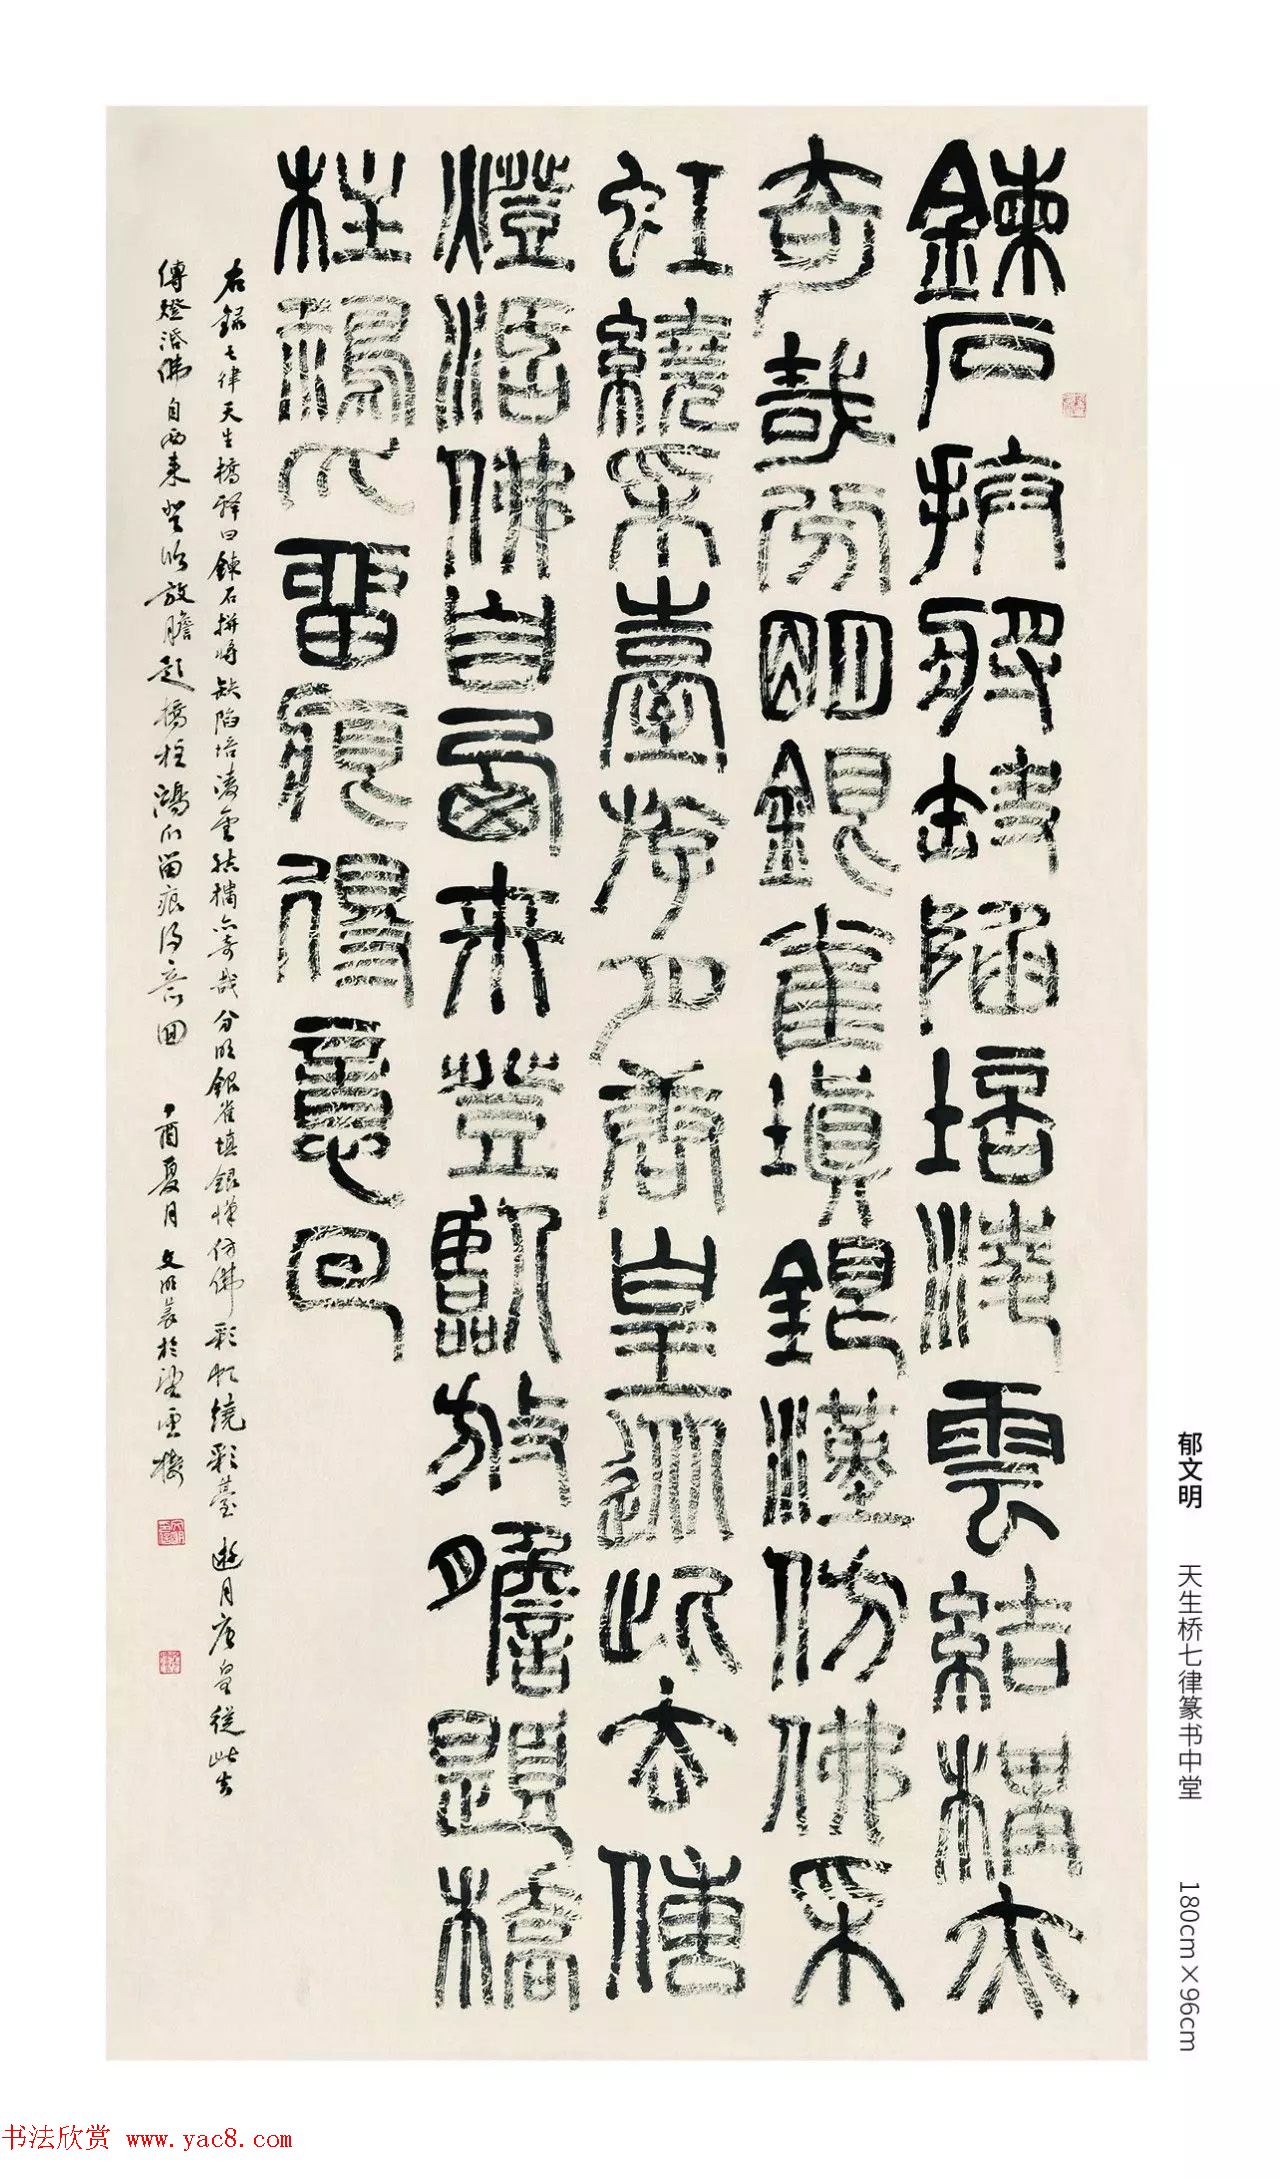 鍊石拚將缺陷培凌雲結構亦
奇哉分明銀雀填銀漢仿佛采
虹繞采臺游月唐皇從此去傳
燈活佛自西来登臨放膽題橋
柱鴻爪留痕得意回
右錄七律天生橋釋曰鍊石拚將缺陷培凌雲結構亦奇哉分明銀雀填銀漢仿佛彩虹繞彩臺遊月唐皇從此去
傳燈活佛自西来登臨放膽題橋柱鴻爪留痕得意回 丁酉夏月文明
郁文明 天生桥七律篆书中堂 180cm×96cm
书法欣赏 www.yac8.com